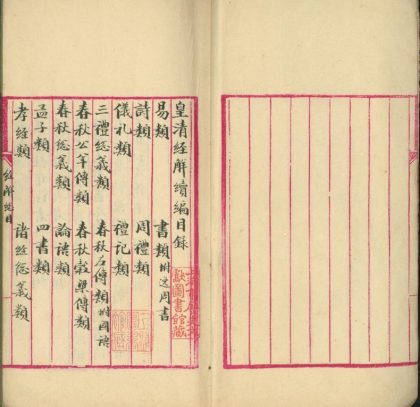 皇清經解續編目錄
易類 書類附逸周書
詩類 周禮類
儀礼類 禮記類
三禮總義類 春秋左傳類附國語
春秋公羊傳類 春秋穀梁傳類
春秋总義類 論語類
孟子類 四書類
孝經類 諸經总義類
圖書館藏